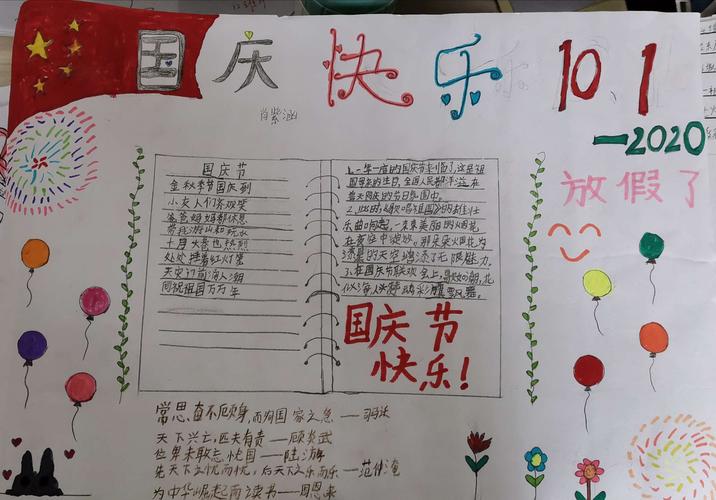 国庆快乐 10.1
肖紫涵
—2020
放假了
国庆节
金秋季节国庆到
小友人们齐欢笑
爸爸妈妈都休息
带我游山和玩水
十月火苔也热烈
处处挂着红灯笼
天安门前海人潮
同祝祖国万万年
1.一年一度的国庆节来临了,这是祖
国母亲的生日,全国人民都洋溢在
普天同庆的节日氛围中。
2.此时《歌唱祖国》的雄壮
乐曲响起,一束束美丽的烟花
在夜空中绽放。那朵朵火花为
漆黑的天空增添了无限魅力。
3.在国庆节联欢会上,歌如潮,花
似海,人头攒动,彩旗飘舞。
国庆节
快乐!
常思奋不顾身,而殉国家之急——司马迁
天下兴亡,匹夫有责——顾炎武
位卑未敢忘忧国——陆游
先天下之忧而忧,后天下之乐而乐——范仲淹
为中华崛起而读书——周恩来